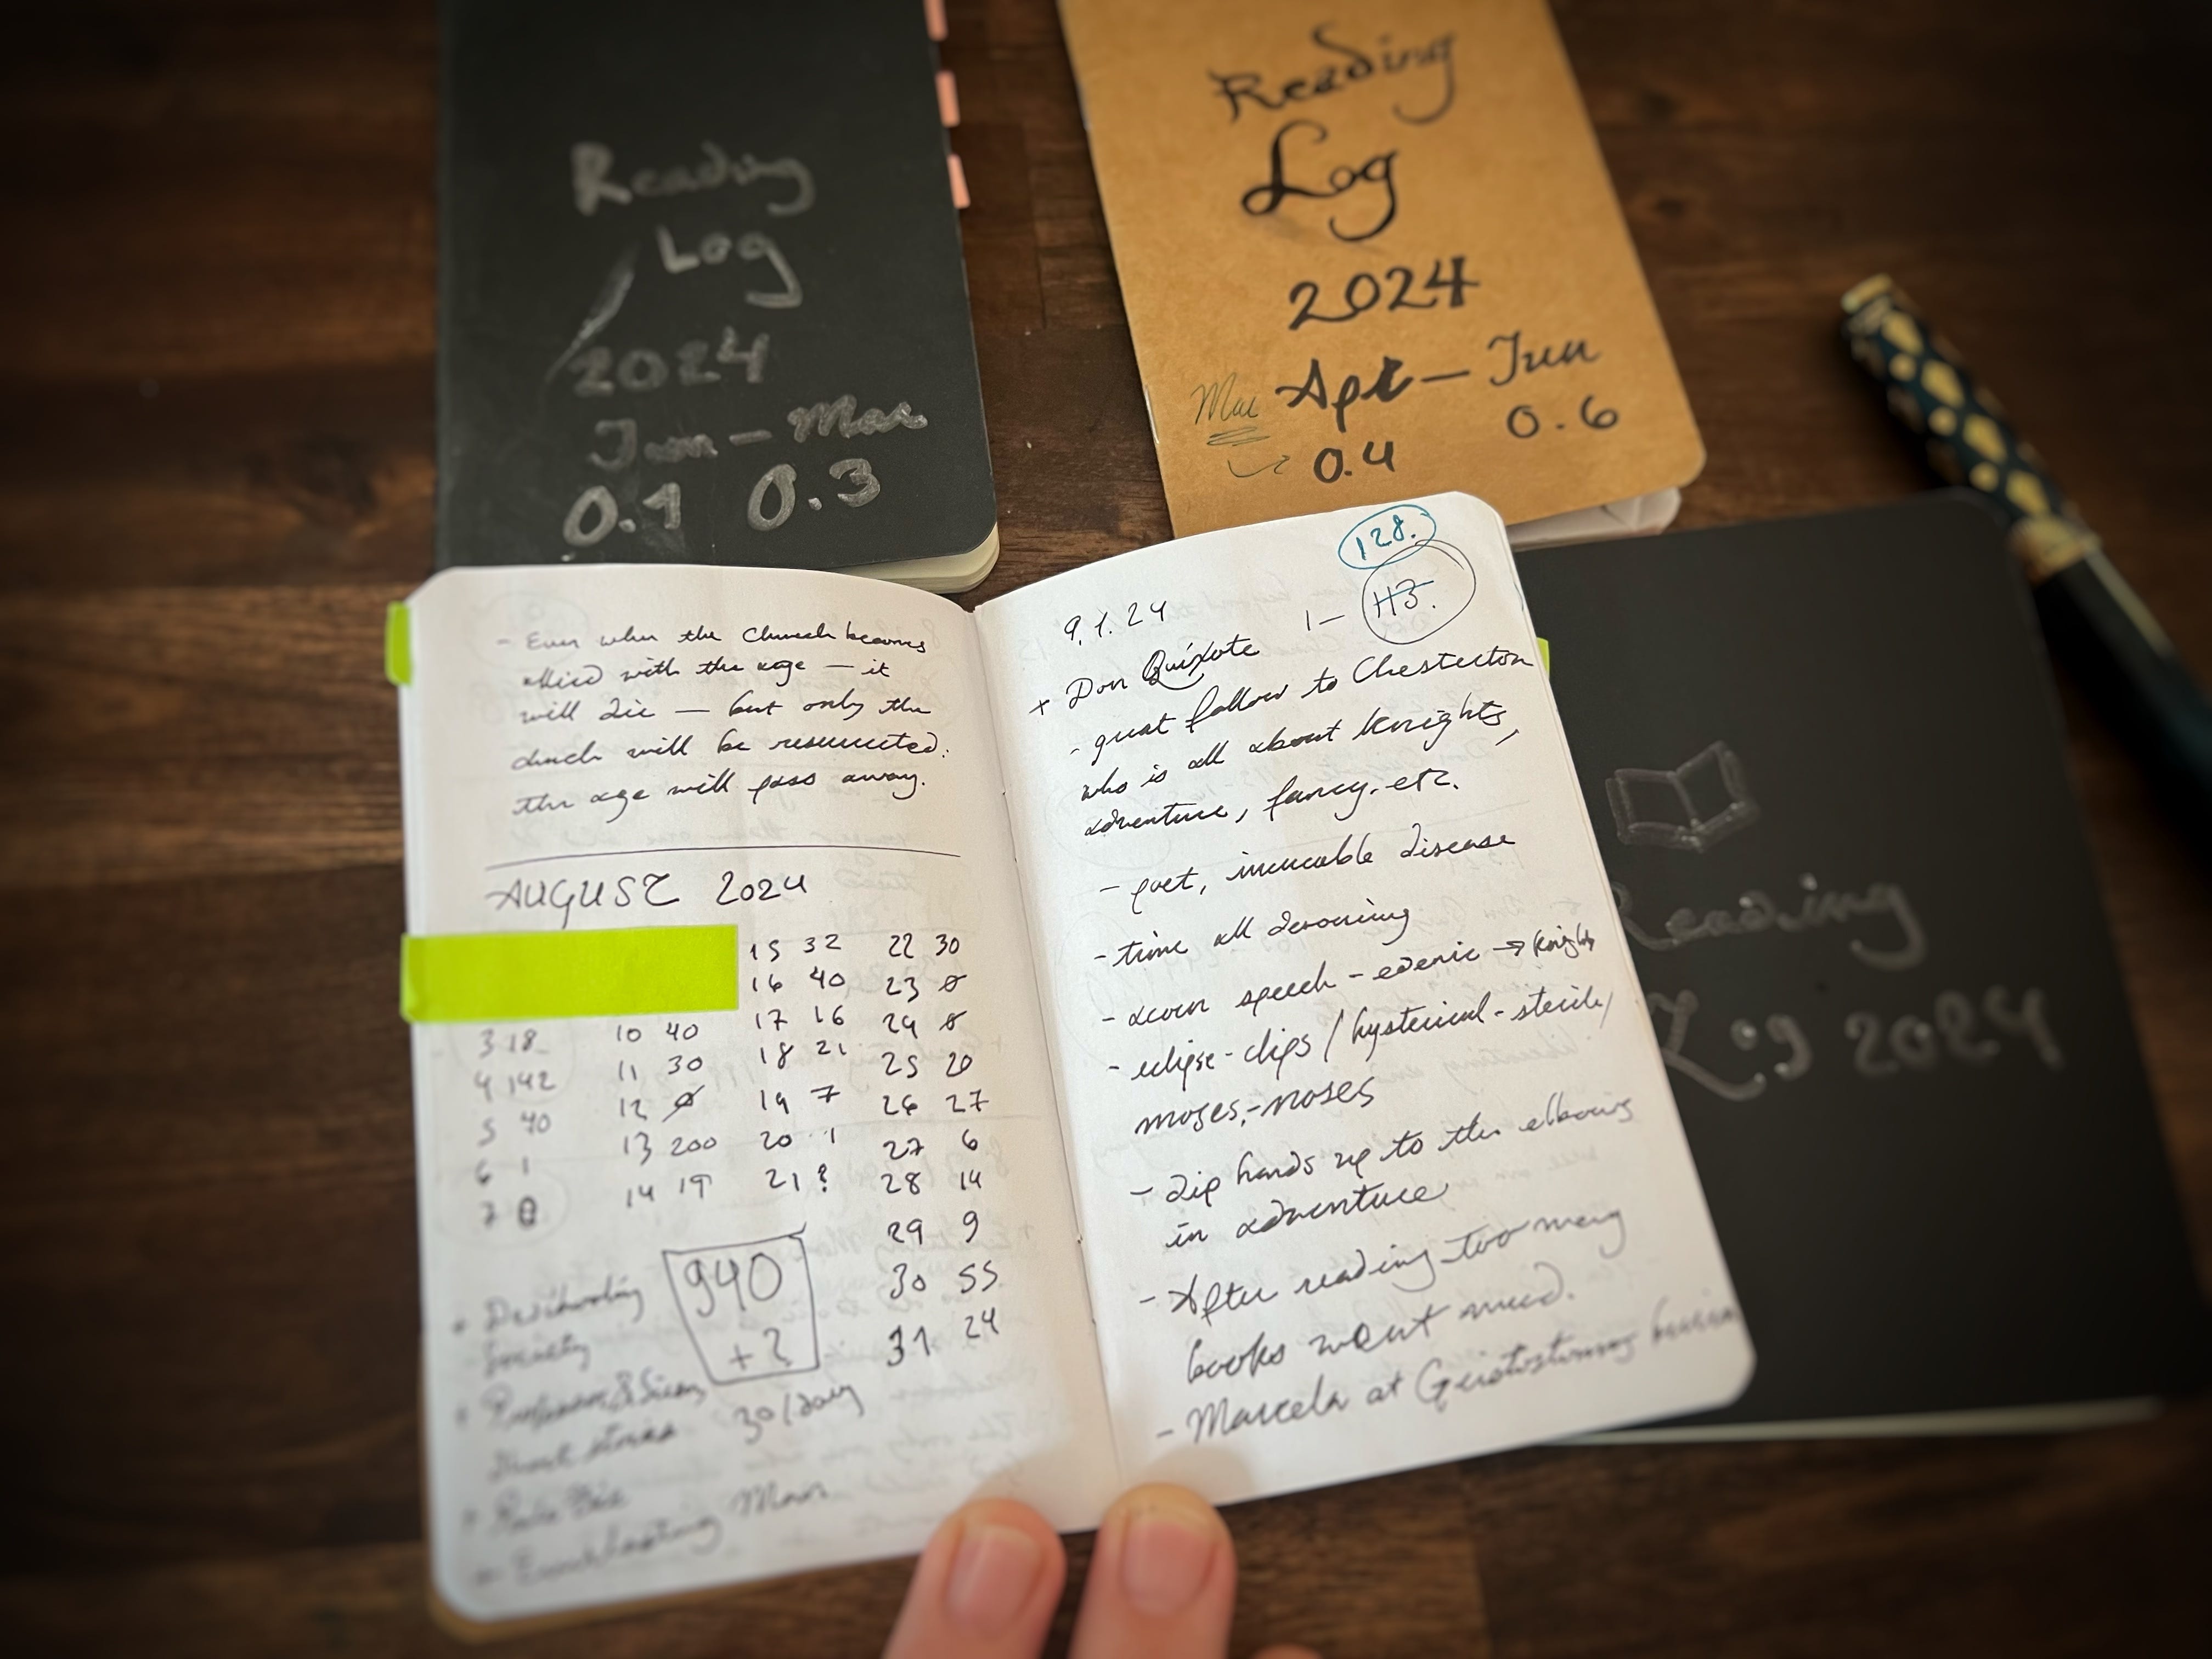 Reading
Log
2024
Jan - Mar
0.1 0.3
Reading
Log
2024
Mar Apr - Jun
0.4 0.6
- Even when the Church becomes
allied with the age — it
will die — but only the
church will be resurrected.
the age will pass away.
AUGUST 2024
15 32 22 30
16 40 23 ø
3 18 10 40 17 16 24 ø
4 142 11 30 18 21 25 20
5 40 12 ø 19 7 26 27
6 1 13 200 20 1 27 6
7 0 14 19 21 ? 28 14
29 9
30 55
31 24
940
+ ?
30/day
Society
Short stories
Everlasting Man
128.
9.1.24 1 — 113.
+ Don Quixote
- great follow to Chesterton
who is all about knights,
adventure, fancy, etc.
- poet, incurable disease
- time all devouring
- acorn speech - edenic → knights
- eclipse - clips / hysterical - sterile /
moses - noses
- dip hands up to the elbows
in adventure
- After reading too many
books went mad.
- Marcela at
Reading
Log 2024